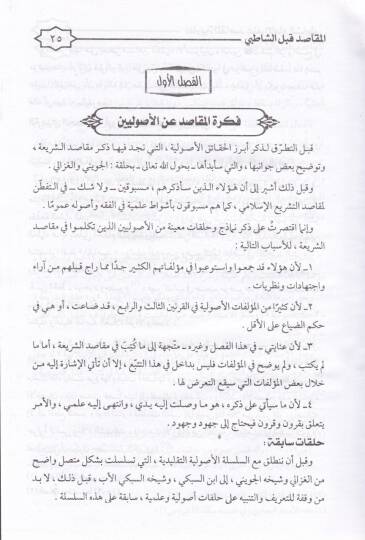 المقاصد قبل الشاطبي
٢٥
الفصل الأول
فكرة المقاصد عن الأصوليين
قبل التطرّق لذكر أبرز الحقائق الأصولية ، التي نجد فيها ذكر مقاصد الشريعة ،
وتوضيح بعض جوانبها ، والتي سأبدأها ـ بحول الله تعالى ـ بحلقة : الجويني والغزالي .
وقبل ذلك أشير إلى أن هؤلاء الذين سأذكرهم ، مسبوقين ـ ولا شك ـ في التفطّن
لمقاصد التشريع الإسلامي ، كما هم مسبوقون بأشواط علمية في الفقه وأصوله عمومًا .
وإنما اقتصرتُ على ذكر نماذج وحلقات معينة من الأصوليين الذين تكلموا في مقاصد
الشريعة ، للأسباب التالية :
١ـ لأن هؤلاء قد جمعوا واستوعبوا في مؤلفاتهم الكثير جدًا مما راج قبلهم من آراء
واجتهادات ونظريات .
٢ـ لأن كثيرًا من المؤلفات الأصولية في القرنين الثالث والرابع ، قد ضاعت ، أو هي في
حكم الضياع على الأقل .
٣ـ لأن عنايتي ـ في هذا الفصل وغيره ـ متّجهة إلى ما كُتِبَ في مقاصد الشريعة ، أما ما
لم يكتب ، ولم يوضح في المؤلفات فليس بداخل في هذا التتبّع ، إلا أن تأتي الإشارة إليه ، من
خلال بعض المؤلفات التي سيقع التعرض لها .
٤ـ لأن ما سيأتي على ذكره ، هو ما وصلت إليه يدي ، وانتهى إليه علمي ، والأمر
يتعلق بقرون وقرون فيحتاج إلى جهود وجهود .
حلقات سابقة :
وقبل أن ننطلق مع السلسلة الأصولية التقليدية ، التي تسلسلت بشكل متصل واضح
من الغزالي وشيخه الجويني ، إلى ابن السبكي ، وشيخه السبكي الأب ، قبل ذلك ، لا بد
من وقفة للتعريف والتنبيه على حلقات أصولية وعلمية ، سابقة على هذه السلسلة .